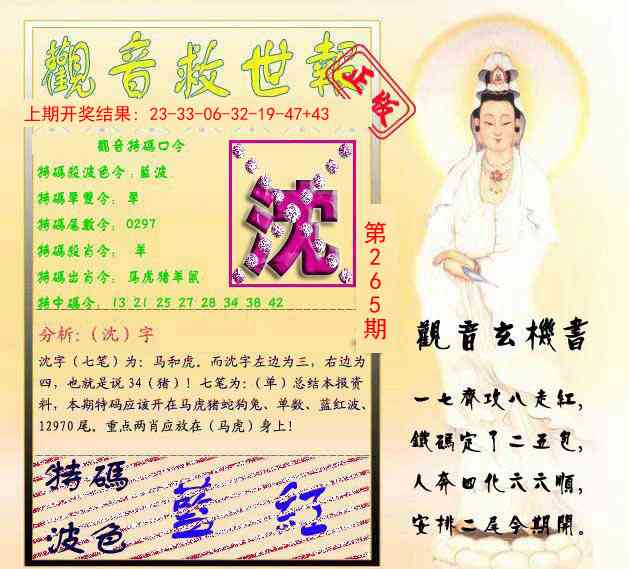 觀音救世報
正版
上期开奖结果：23-33-06-32-19-47+43
觀音特碼口令
特碼殺波色令：藍波
特碼單雙令：單
特碼尾數令：0297
特碼殺肖令： 單
特碼出肖令：馬虎猪羊鼠
特中碼令：13 21 25 27 28 34 38 42
沈
第265期
分析：（沈）字
沈字（七笔）为：马和虎。而沈字左边为三，右边为
四，也就是说34（猪）！七笔为：（单）总结本报资
料，本期特码应该开在马虎猪蛇狗兔、单数、蓝红波、
12970尾。重点两肖应放在（马虎）身上！
特碼
波色
藍 紅
觀音玄機書
一七齊攻八走紅，
鐵碼定丁二五包，
人奔四化六六順，
安排二尾今期開。